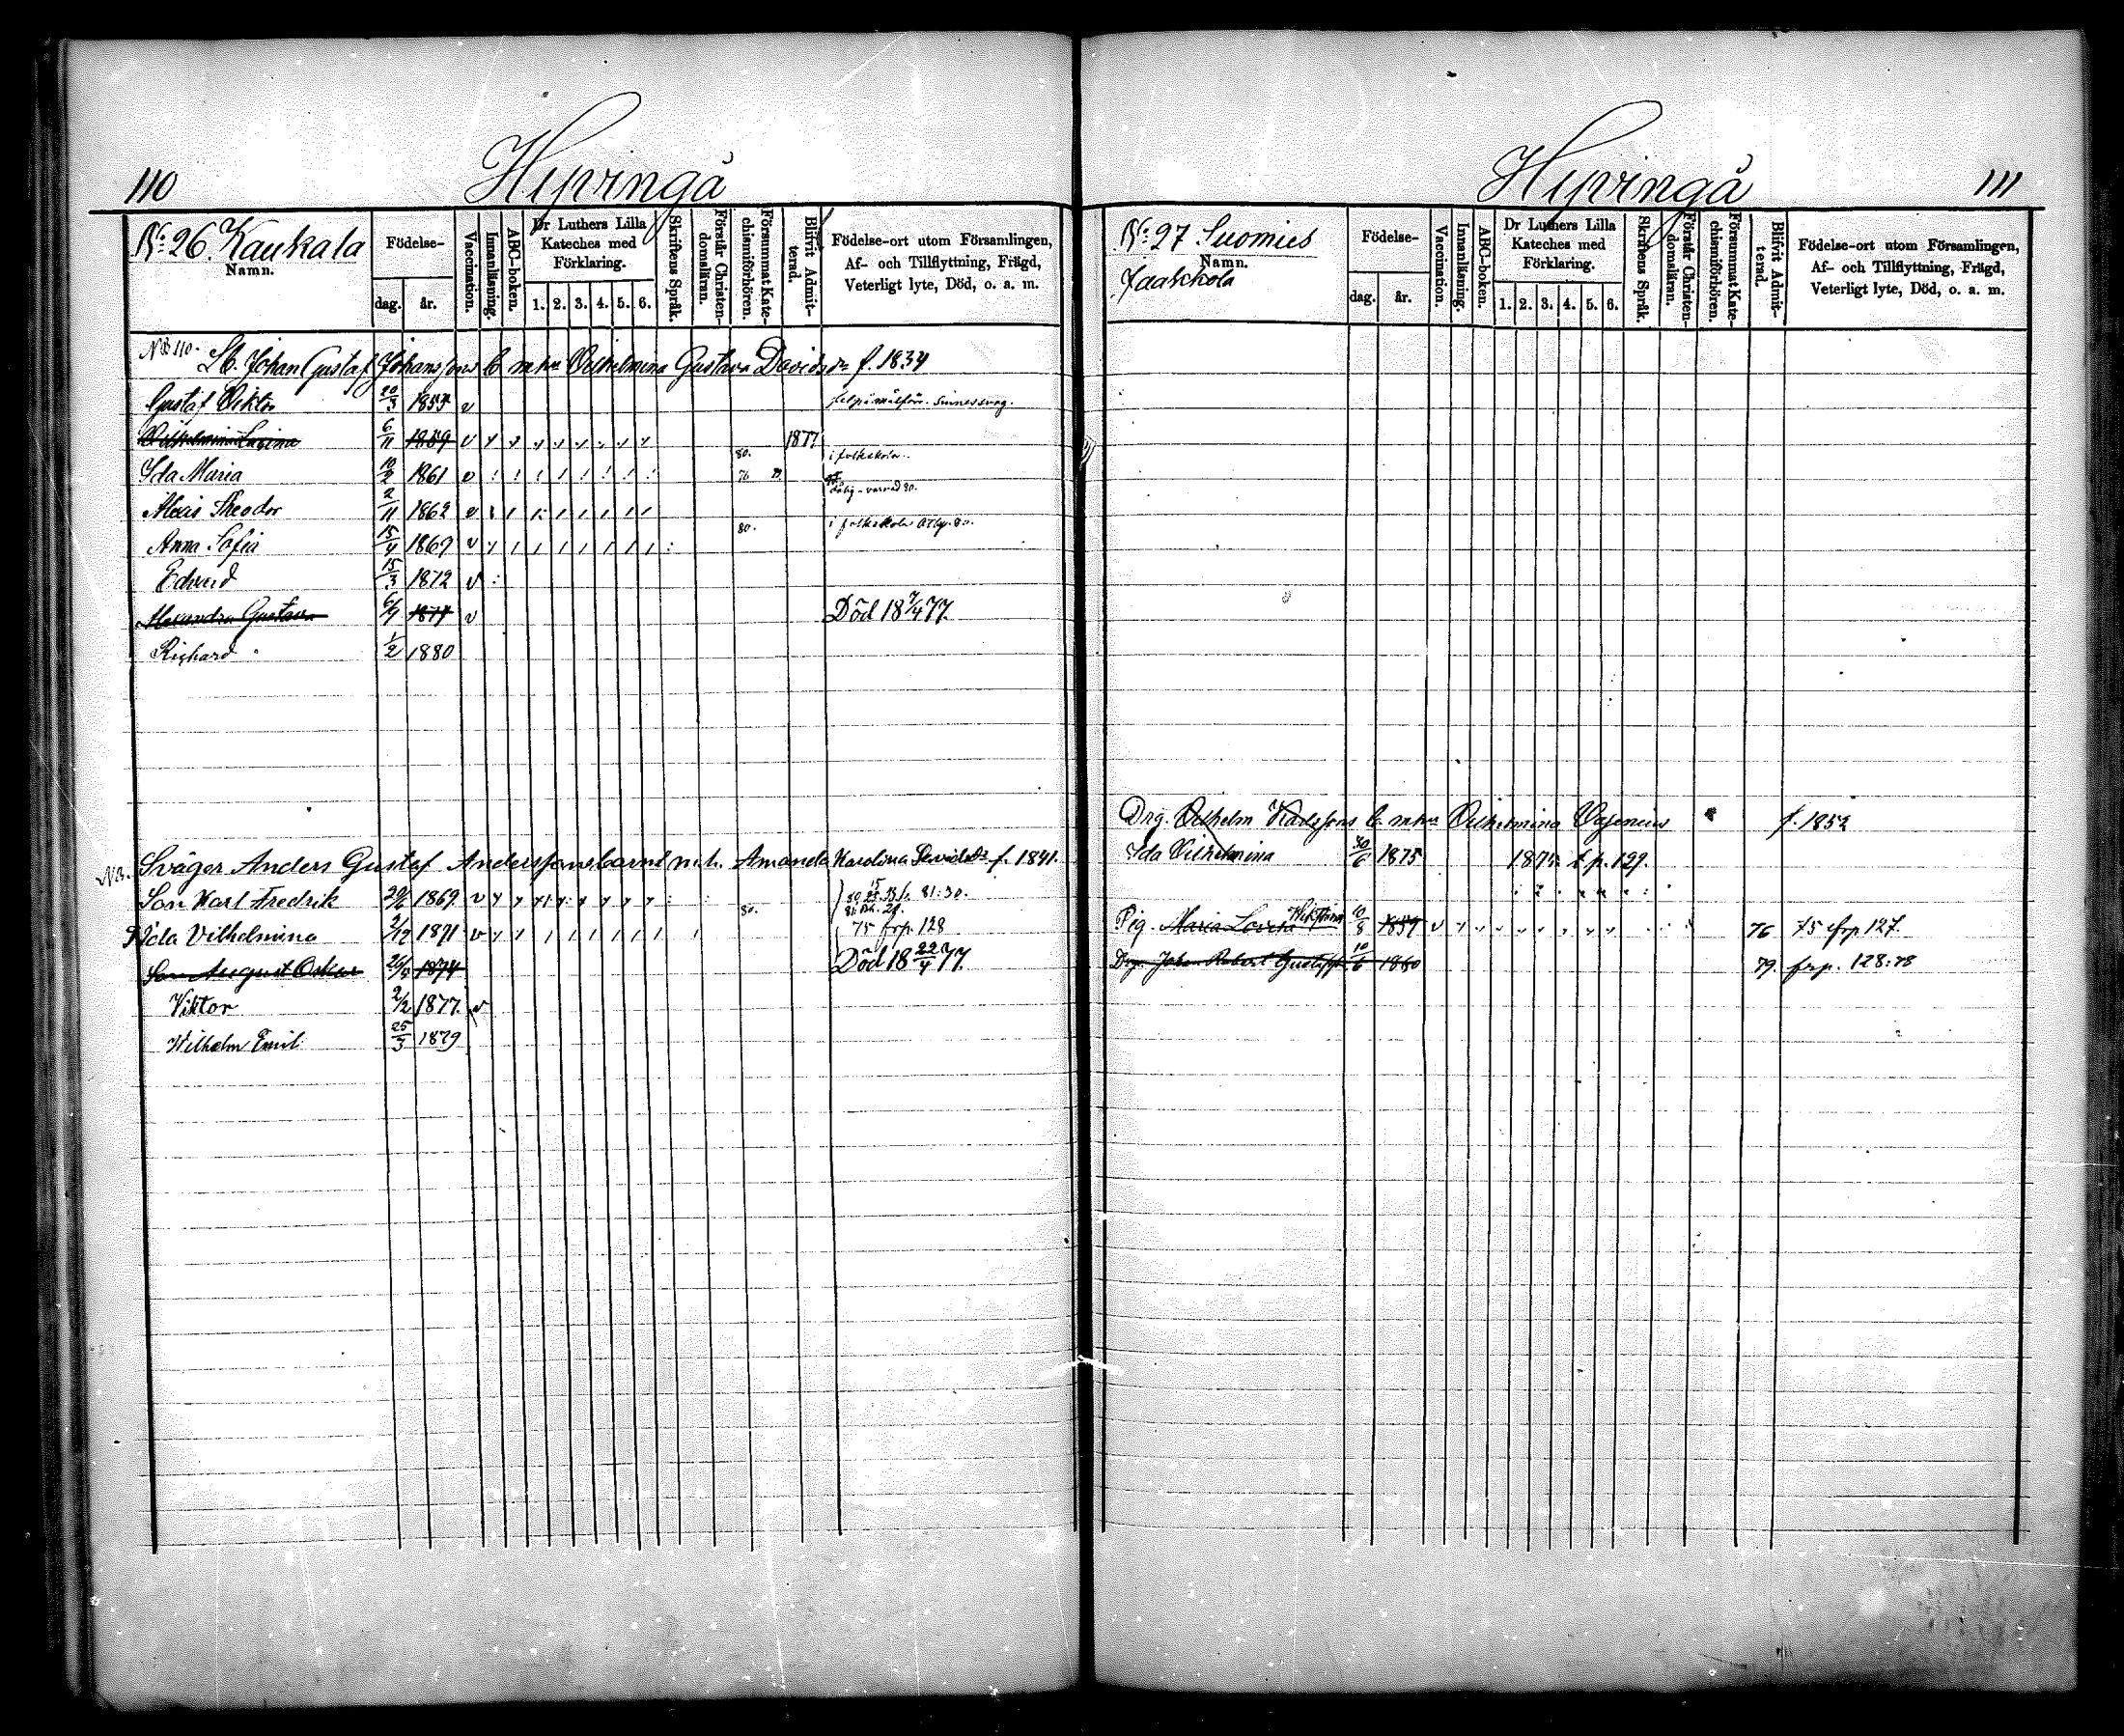 110
Hyvingå
Nº 26. Kaukala
Namn.
Födelse-
dag. år.
Vaccination.
Innanläsning.
ABC-boken.
Dr Luthers Lilla
Kateches med
Förklaring.
1. 2. 3. 4. 5. 6.
Skriftens Språk.
Förstår Christen-
domsläran.
Försummat Kate-
chismiförhören.
Blifvit Admit-
terad.
Födelse-ort utom Församlingen,
Af- och Tillflyttning, Frägd,
Veterligt lyte, Död, o. a. m.
NB 110.
Johan Gustaf Johanssons b. m. hu Vilhelmina Gustava Davidsdr f. 1834
Gustaf Viktor 20/3 1857 v
Vilhelmina Lovina 6/11 1859 v 1877
Ida Maria 10/2 1861 v 80. 76 i folkskola.
Alexis Theodor 2/11 1862 v
Anna Sofia 15/4 1869 v 80. i folkskola
Edvard 15/3 1872 v
Alexandra Gustava 1877 v Död 18 7/4 77.
Richard 1/2 1880
Nº. Svåger Anders Gustaf Anderssons barn m. h. Amanda Karolina Davidsdr f. 1841.
Son Karl Fredrik 1869 v 80. 81:30.
Ida Vilhelmina 2/12 1871 v 75 frp. 128
Son August Oskar 1874 Död 18 22/4 77.
Viktor 2/2 1877. v
Wilhelm Emil 25/3 1879
111
Hyvingå
Nº 27 Suomies
Namn.
Jaakkola
Födelse-
dag. år.
Vaccination.
Innanläsning.
ABC-boken.
Dr Luthers Lilla
Kateches med
Förklaring.
1. 2. 3. 4. 5. 6.
Skriftens Språk.
Förstår Christen-
domsläran.
Försummat Kate-
chismiförhören.
Blifvit Admit-
terad.
Födelse-ort utom Församlingen,
Af- och Tillflyttning, Frägd,
Veterligt lyte, Död, o. a. m.
Drg. Vilhelm Karlssons b. m. hu Vilhelmina Vasenius f. 1852
Ida Vilhelmina 30/6 1875 1875 t. p. 129.
Pig. Maria Lovisa 10/8 1859 v 76 75 frp. 127.
Drg. Johan Robert Gustafss. 10/6 1860 79. frp. 128:78